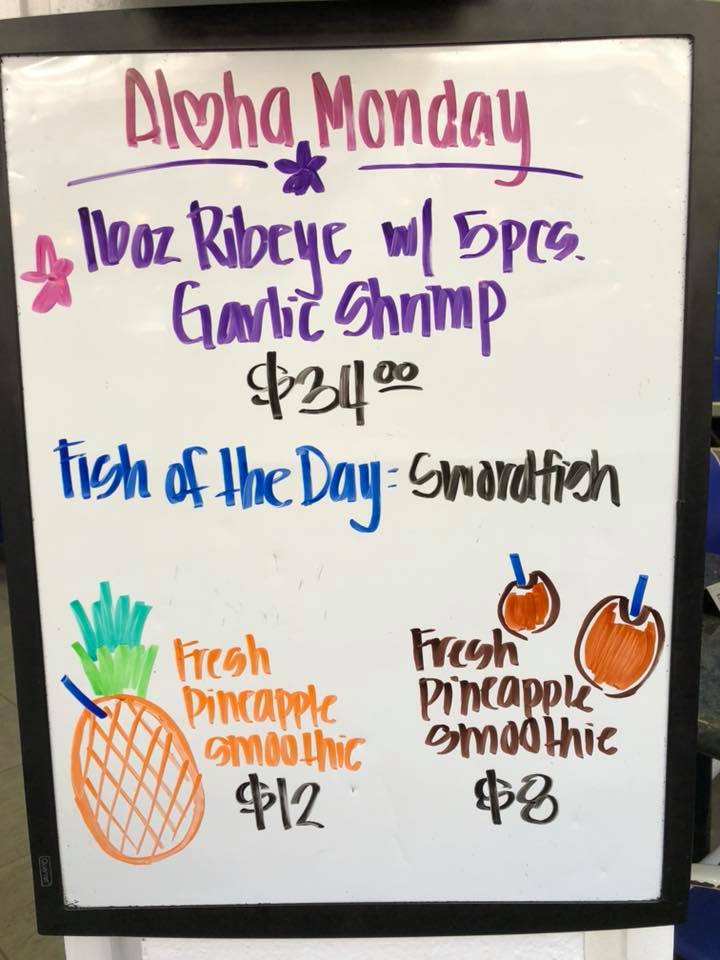 Aloha Monday
16oz Ribeye w/ 5pcs.
Garlic Shrimp
$34.00
Fish of the Day: Swordfish
Fresh
pineapple
smoothie
$12
Fresh
pineapple
smoothie
$8
Quartet